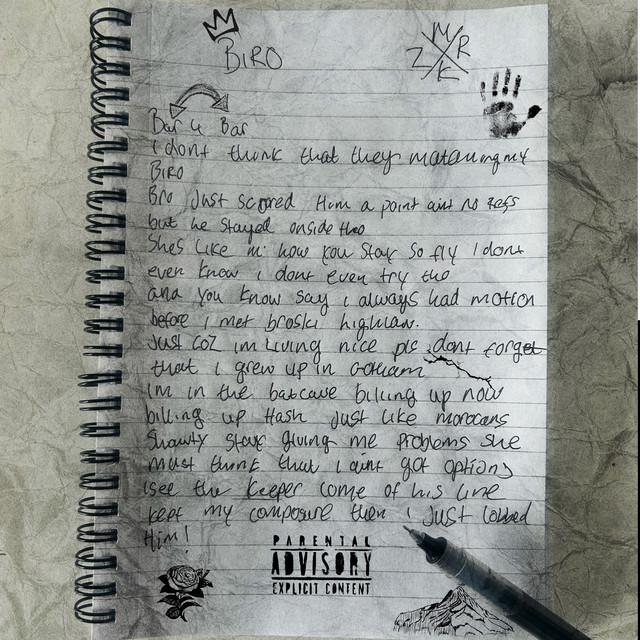 BIRO
M
Z R
K
Bar 4 Bar
I dont think that they matching my
BIRO
Bro Just scored Him a point aint no refs
but he stayed onside tho
Shes Like "K" how you stay so fly I dont
even know i dont even try tho
and you know say i always had motion
before i met broski highlaw.
Just coz im living nice pls dont forget
that i grew up in Gotham
im in the batcave billing up now
billing up Hash Just like morocans
Shawty stay giving me problems she
must think that i aint got options
i see the keeper come of his line
kept my composure then i Just lobbed
Him!
PARENTAL
ADVISORY
EXPLICIT CONTENT